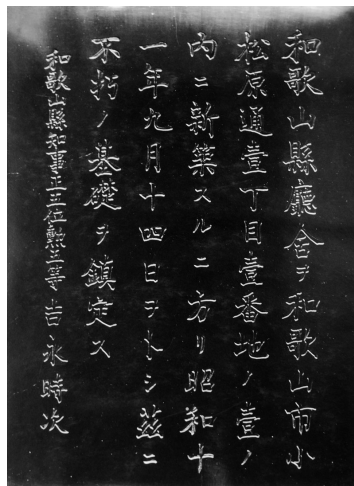 和歌山縣廳舍ヲ和歌山市小
松原通壹丁目壹番地ノ壹ノ
內ニ新築スルニ方リ昭和十
一年九月十四日ヲトシ茲ニ
不朽ノ基礎ヲ鎭定ス
和歌山縣知事正五位勲三等吉永時次